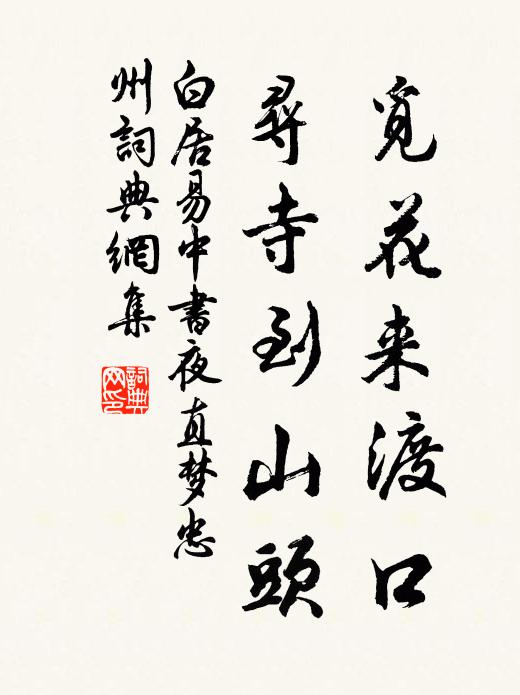 覓花来渡口
尋寺到山頭
白居易中書夜直梦忠
州詞典網集
詞典网印